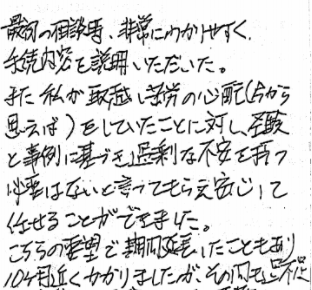 最初の相談時、非常にわかりやすく、
手続内容を説明いただいた。
また 私が取越し苦労の心配(今から
思えば)をしていたことに対し、経験
と事例に基づき過剰な不安を持つ
必要はないと言ってもらえ安心して
任せることができました。
こちらの要望で期間延長したこともあり
10ヶ月近くかかりましたが、その間も